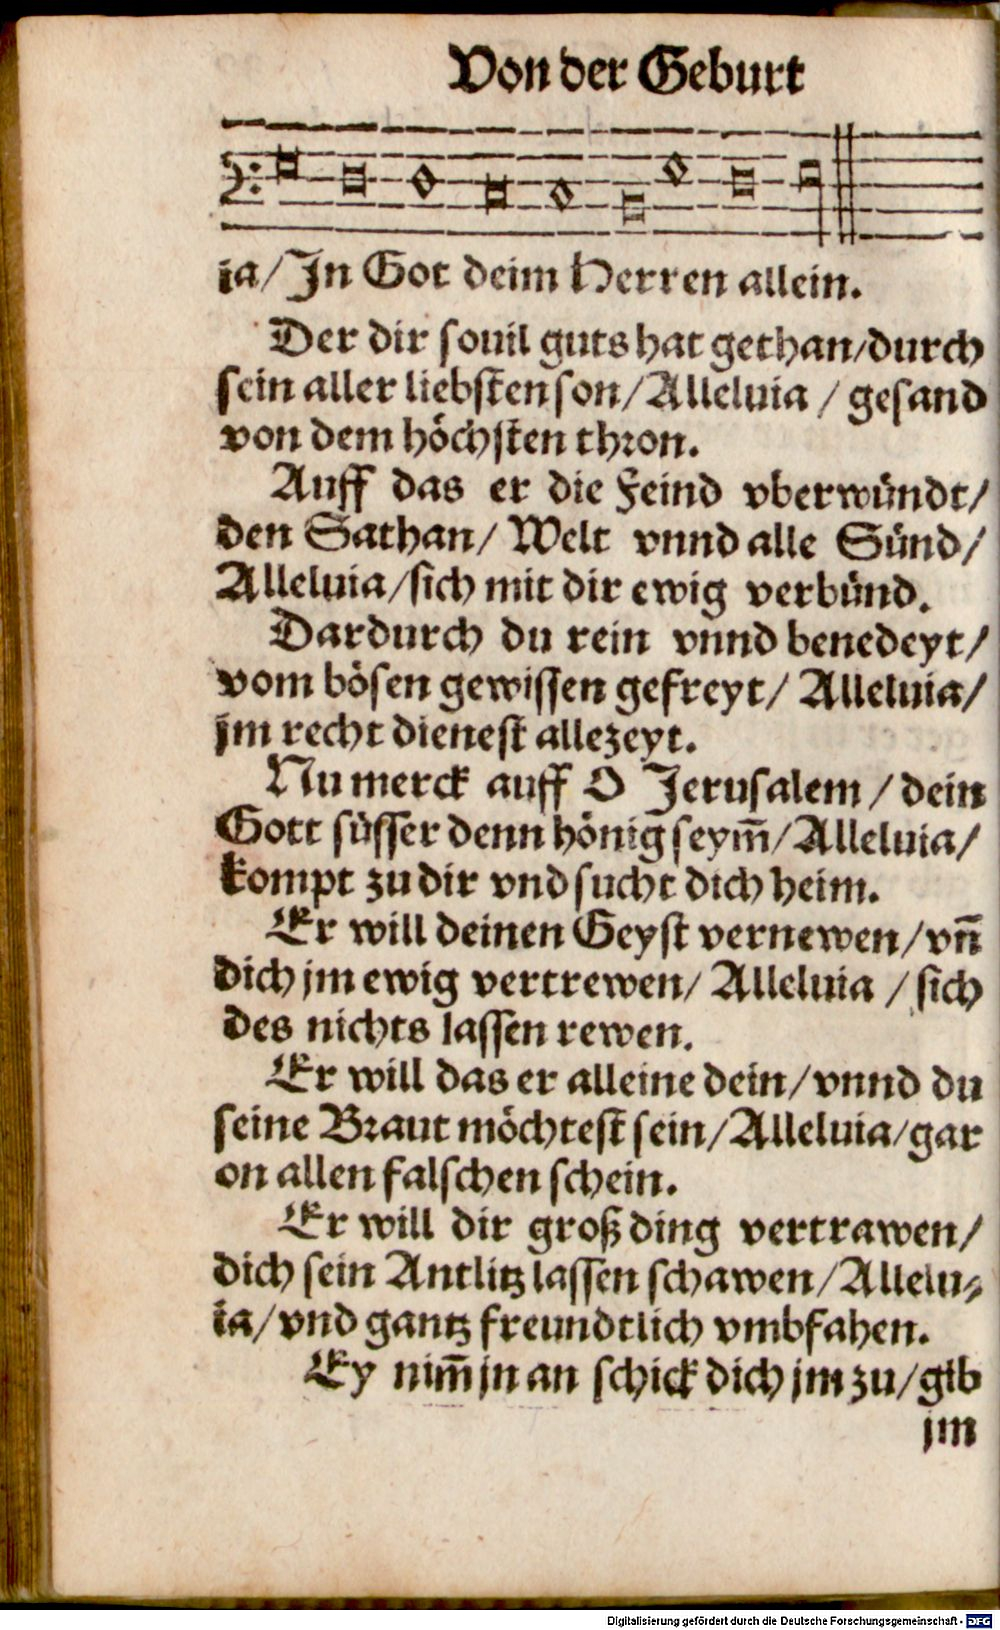 Von der Geburt
ia/ In Got deim Herren allein.
Der dir souil guts hat gethan/durch
sein aller liebsten son/ Alleluia / gesand
von dem höchsten thron.
Auff das er die Feind vberwündt/
den Sathan/ Welt vnnd alle Sünd/
Alleluia/sich mit dir ewig verbünd.
Dardurch du rein vnnd benedeyt/
vom bösen gewissen gefreyt/ Alleluia/
jm recht dienest allezeyt.
Nu merck auff O Jerusalem / dein
Gott süsser denn hönig seym̃/ Alleluia/
kompt zu dir vnd sucht dich heim.
Er will deinen Geyst vernewen/ vñ
dich jm ewig vertrewen/ Alleluia / sich
des nichts lassen rewen.
Er will das er alleine dein/ vnnd du
seine Braut möchtest sein/ Alleluia/ gar
on allen falschen schein.
Er will dir groß ding vertrawen/
dich sein Antlitz lassen schawen/ Allelu⸗
ia/ vnd gantz freundtlich vmbfahen.
Ey nim̃ jn an schick dich jm zu/ gib
jm
Digitalisierung gefördert durch die Deutsche Forschungsgemeinschaft - DFG